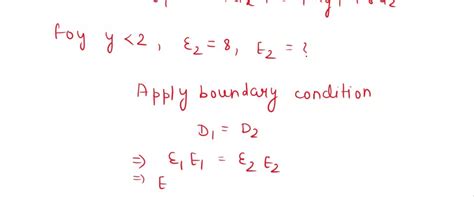 Foy y < 2 , ε₂ = 8 , E₂ = ?
Apply boundary condition
D₁ = D₂
⇒ ε₁ E₁ = ε₂ E₂
⇒ E